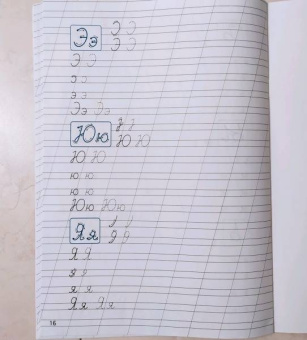 Ээ Э Э
Э Э
Э Э
э э
э э
Ээ Ээ
Юю
Ю Ю
Ю Ю
ю ю
ю ю
Юю Юю
Яя
Я Я
я я
я я
Яя Яя
16